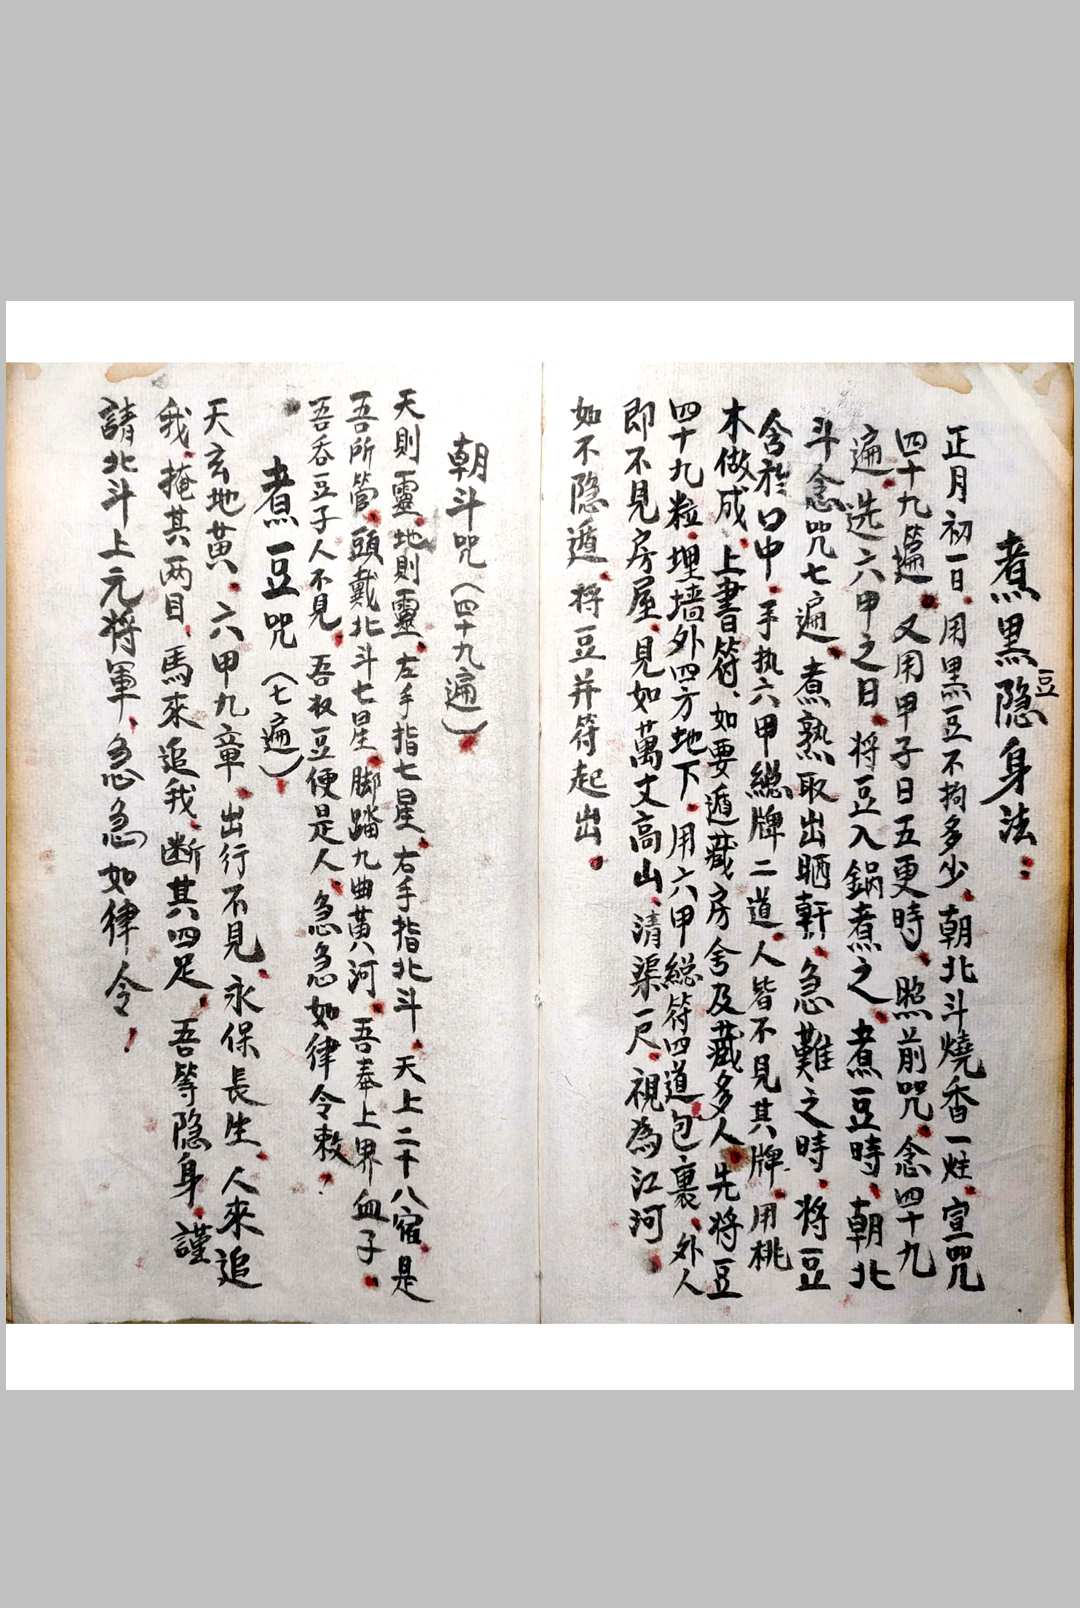 煮黑豆隐身法：
正月初一日、用黑豆不拘多少、朝北斗燒香一炷、宣咒
四十九遍、又用甲子日五更時、照前咒、念四十九
遍、选六甲之日、将豆入鍋煮之、煮豆時、朝北
斗念咒七遍、煮熟取出晒軒、急難之時、将豆
含於口中、手执六甲總牌二道、人皆不見其牌、用桃
木做成、上書符、如要遁藏房舍及藏多人、先将豆
四十九粒、埋墙外四方地下、用六甲総符四道包裹、外人
即不見房屋、見如萬丈高山、清渠一尺、視為江河
如不隐遁、将豆并符起出。
朝斗咒（四十九遍）
天則靈、地則靈、左手指七星、右手指北斗、天上二十八宿、是
吾所管、頭戴北斗七星、脚踏九曲黄河、吾奉上界血子、
吾吞豆子人不見、吾收豆便是人、急急如律令敕、
煮豆咒（七遍）
天玄地黄、六甲九章、出行不見、永保長生、人來追
我、掩其两目、馬來追我、断其四足、吾等隐身、謹
請北斗上元将軍、急急如律令、